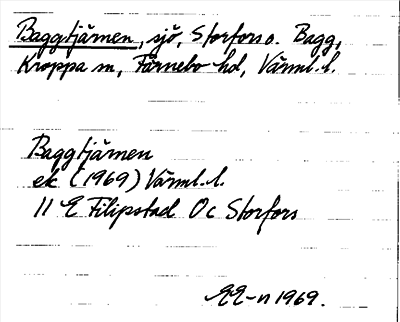 Baggtjärnen, sjö, Storfors o. Bagg,
Kroppa sn, Färnebo hd, Värml. l.
Baggtjärnen
ek (1969) Värml. l.
11 E Filipstad 0c Storfors
EE-n 1969.